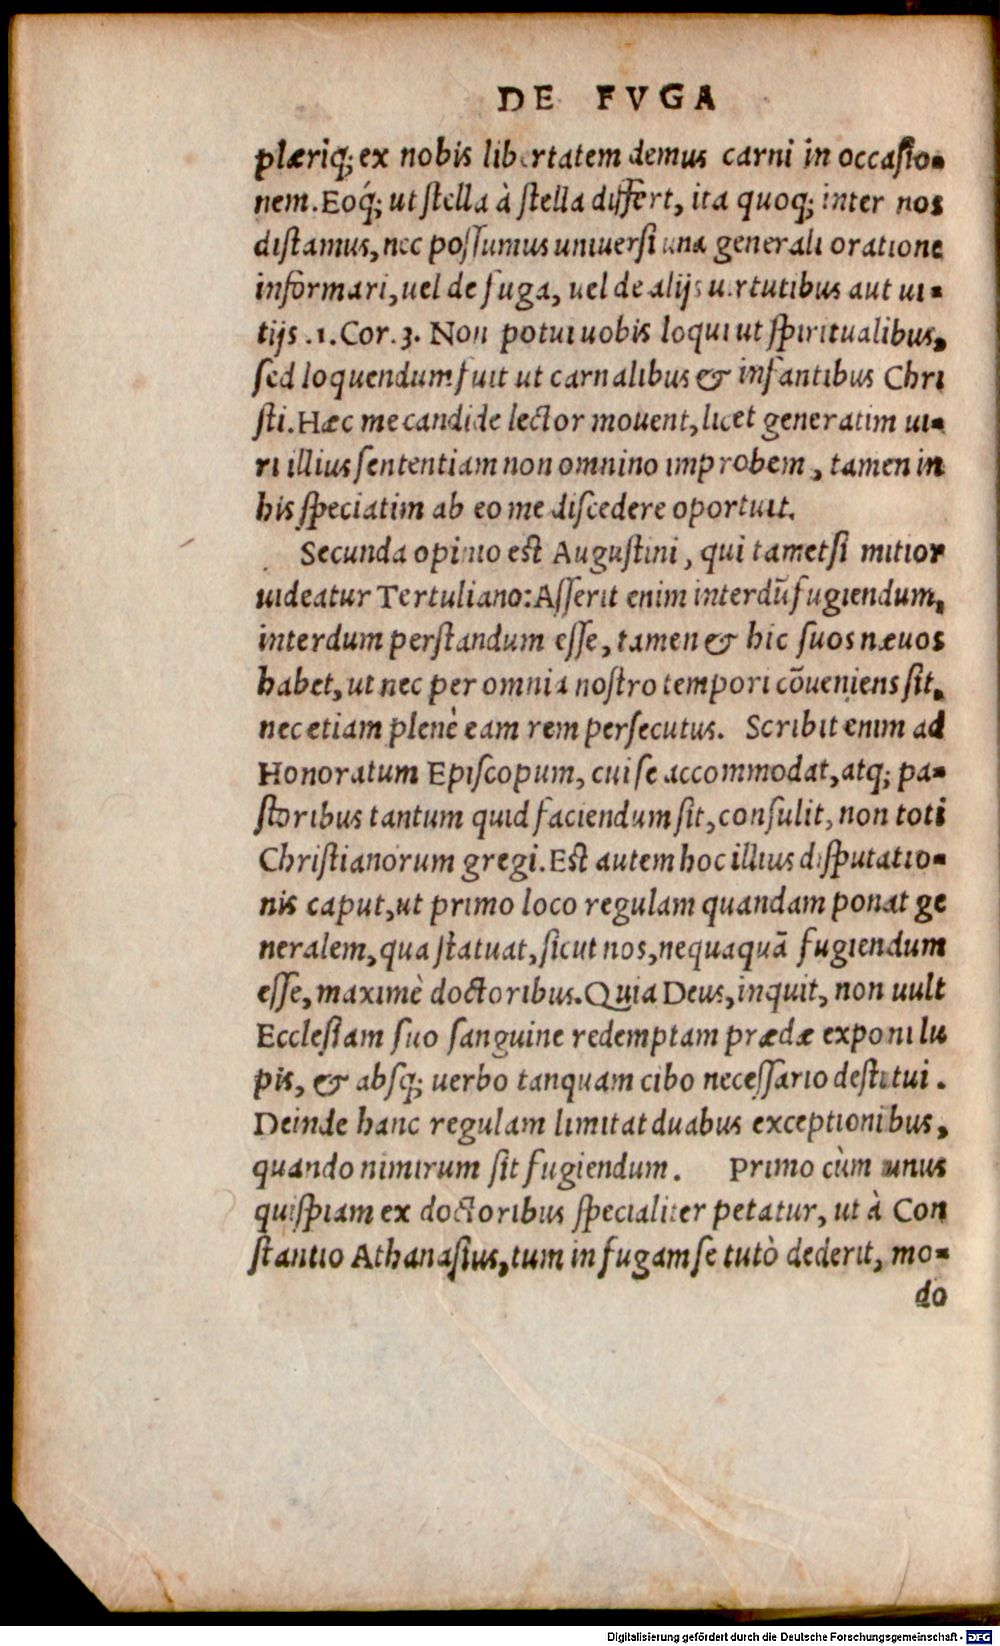 DE FVGA
plæriq; ex nobis libertatem demus carni in occasio-
nem. Eoq́; ut stella à stella differt, ita quoq; inter nos
distamus, nec possumus uniuersi una generali oratione
informari, uel de fuga, uel de alijs uirtutibus aut ui-
tijs .1. Cor. 3. Non potui uobis loqui ut spiritualibus,
sed loquendum fuit ut carnalibus & infantibus Chri
sti. Hæc me candide lector mouent, licet generatim ui-
ri illius sententiam non omnino improbem, tamen in
his speciatim ab eo me discedere oportuit.
Secunda opinio est Augustini, qui tametsi mitior
uideatur Tertuliano: Asserit enim interdũ fugiendum,
interdum perstandum esse, tamen & hic suos næuos
habet, ut nec per omnia nostro tempori cõueniens sit,
nec etiam plenè eam rem persecutus. Scribit enim ad
Honoratum Episcopum, cui se accommodat, atq; pa-
storibus tantum quid faciendum sit, consulit, non toti
Christianorum gregi. Est autem hoc illius disputatio-
nis caput, ut primo loco regulam quandam ponat ge
neralem, qua statuat, sicut nos, nequaquã fugiendum
esse, maximè doctoribus. Quia Deus, inquit, non uult
Ecclesiam suo sanguine redemptam prædæ exponi lu
pis, & absq; uerbo tanquam cibo necessario destitui.
Deinde hanc regulam limitat duabus exceptionibus,
quando nimirum sit fugiendum. Primo cùm unus
quispiam ex doctoribus specialiter petatur, ut à Con
stantio Athanasius, tum in fugam se tutò dederit, mo-
do
Digitalisierung gefördert durch die Deutsche Forschungsgemeinschaft - DFG